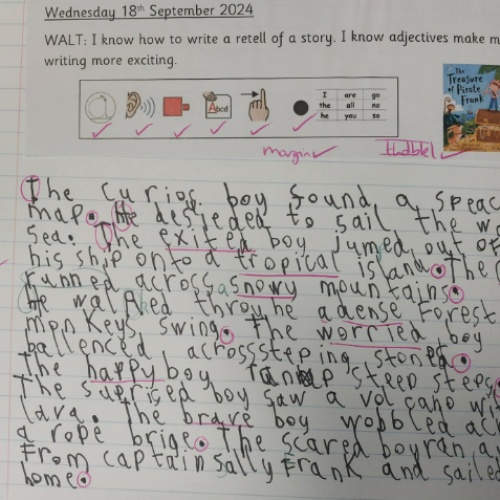 Wednesday 18th September 2024
WALT: I know how to write a retell of a story. I know adjectives make m
writing more exciting.
Abcd
I are go
the all no
he you so
The Treasure of Pirate Frank
margin
The curios boy found a speac
map. He desieded to sail the
sea. The exited boy Jumed out of
his ship onto a tropical island. The
runned across a snowy mountains.
He walked throughe a dense Forest
monkeys swing. The worried boy
ballenced across stepping stones.
The happy boy ran up steep steps
The suprised boy saw a volcano
lava. The brave boy wobbled
a rope brige. The scared boy ran
From captain sally Frank and sailed
home.